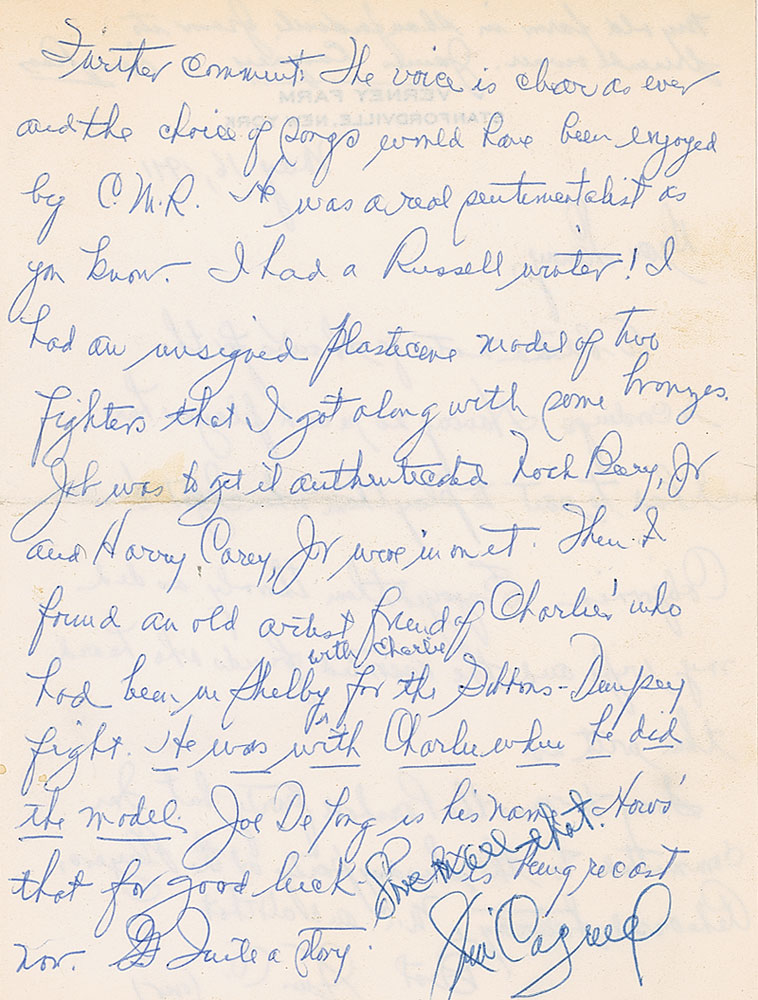 Further comment: The voice is clear as ever
and the choice of songs would have been enjoyed
by C.M.R. He was a real sentimentalist as
you know. I had a Russell winter! I
had an unsigned plasticene model of two
fighters that I got along with some bronzes.
Job was to get it authenticated Noah Beery, Jr
and Harry Carey, Jr were in on it. Then I
found an old artist friend of Charlies' who
with Charlie
had been in Shelby for the Gibbons-Dempsey
fight. He was with Charlie when he did
the model. Joe De Yong is his name. Hows'
that for good luck. is being recast
now. Quite a story.
Jim Cagney
VERNEY FARM
STANFORDVILLE, NEW YORK